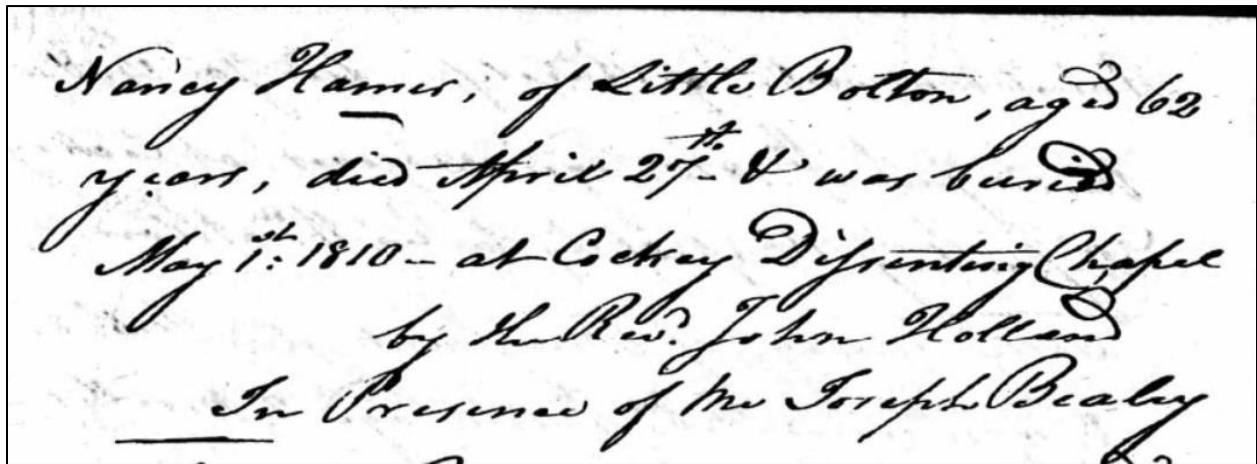 Nancy Hamer, of Little Bolton, aged 62
years, died April 27th. & was buried
May 1st: 1810 - at Cockey Dissenting Chapel
by the Revd. John Holland
In Presence of me Joseph Bealey